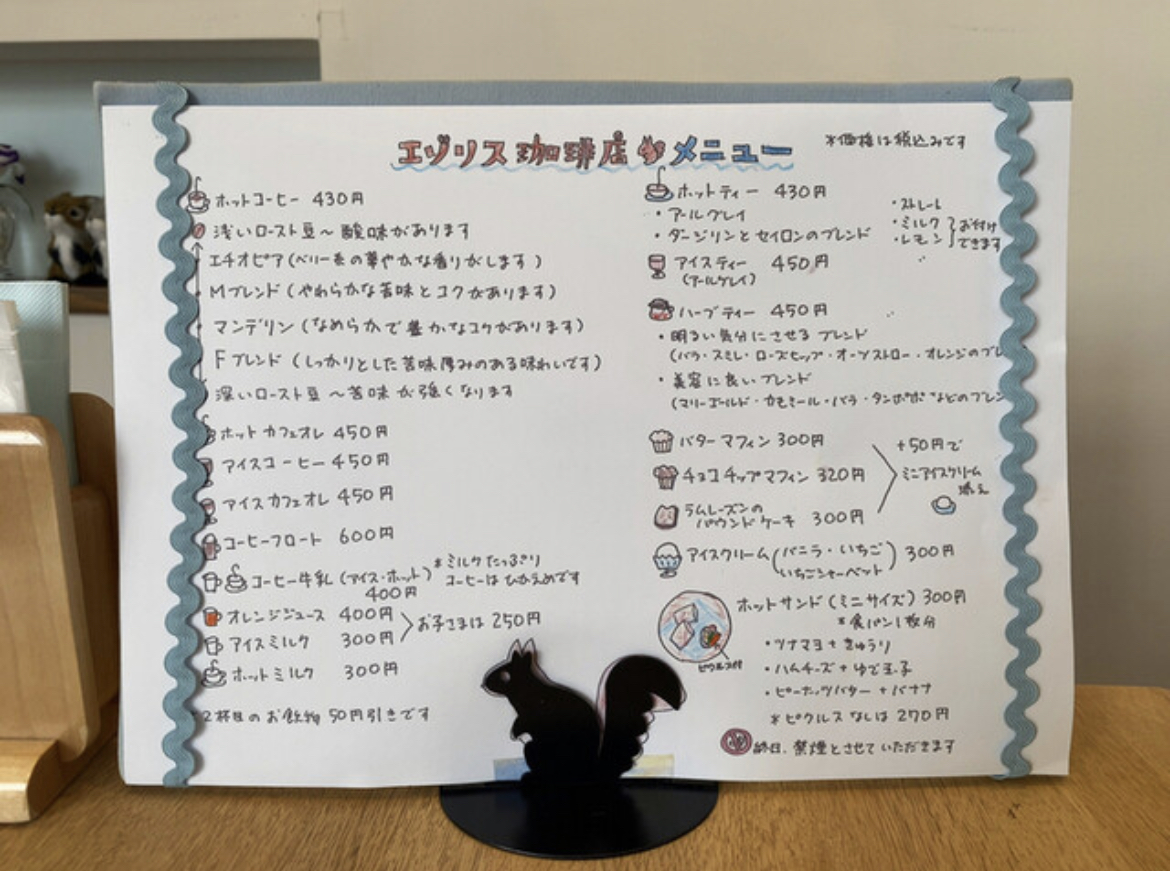 エゾリス珈琲店 メニュー
*価格は税込みです
ホットコーヒー 430円
浅いロースト豆〜酸味があります
エチオピア(ベリー系の華やかな香りがします)
Mブレンド(やわらかな苦味とコクがあります)
マンデリン(なめらかで豊かなコクがあります)
Fブレンド(しっかりとした苦味厚みのある味わいです)
深いロースト豆〜苦味が強くなります
ホットカフェオレ 450円
アイスコーヒー 450円
アイスカフェオレ 450円
コーヒーフロート 600円
コーヒー牛乳(アイス・ホット)
400円
*ミルクたっぷり
コーヒーはひかえめです
オレンジジュース 400円
アイスミルク 300円
お子さまは250円
ホットミルク 300円
2杯目のお飲物50円引きです
ホットティー 430円
・アールグレイ
・ダージリンとセイロンのブレンド
・ストレート
・ミルク
・レモン
お付け
できます
アイスティー 450円
(アールグレイ)
ハーブティー 450円
・明るい気分にさせるブレンド
(バラ・スミレ・ローズヒップ・オーツストロー・オレンジのブレ
・美容に良いブレンド
(マリーゴールド・カモミール・バラ・タンポポなどのブレン
バターマフィン 300円
チョコチップマフィン 320円
ラムレーズンの
パウンドケーキ 300円
+50円で
ミニアイスクリーム
添え
アイスクリーム(バニラ・いちご
いちごシャーベット) 300円
ホットサンド(ミニサイズ) 300円
*食パン1枚分
ピクルス付
・ツナマヨ+きゅうり
・ハムチーズ+ゆで玉子
・ピーナッツバター+バナナ
*ピクルスなしは270円
終日、禁煙とさせていただきます